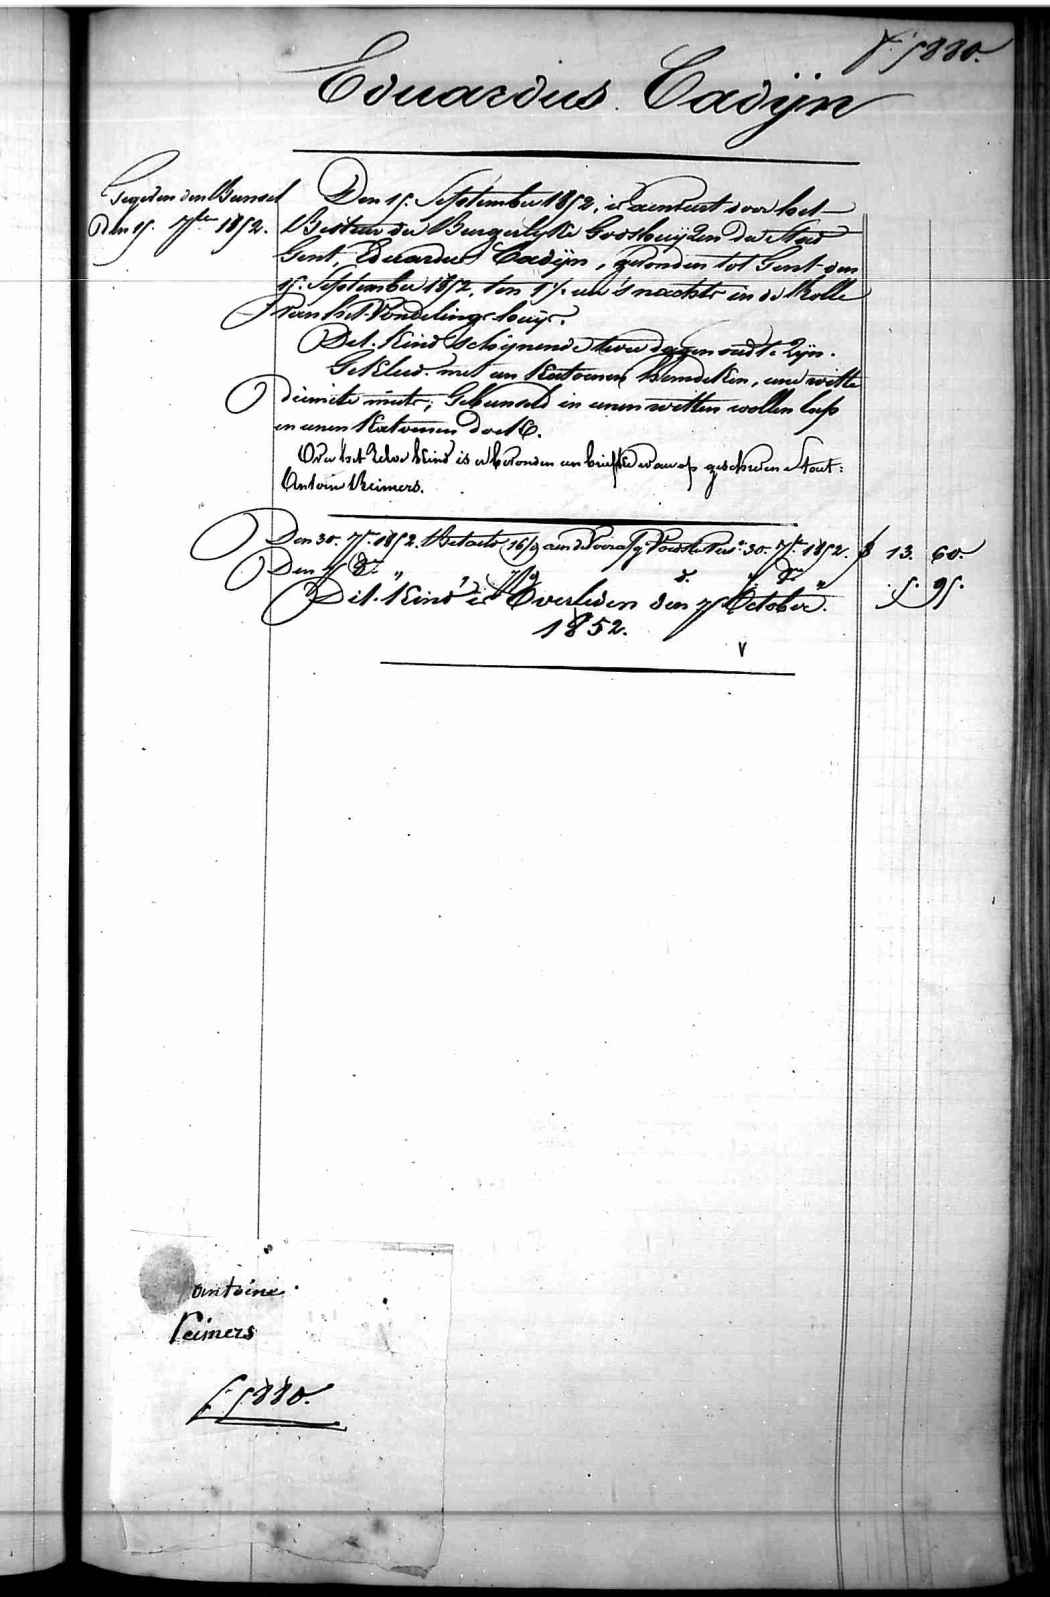 f. 5880.
Eduardus Cadijn
Gegeven den Bunsel
Den 15. 7ber 1852.
Den 15. September 1852, is aenveert door het
Bestuer der Burgerlyke Godshuyzen der Stad
Gent, Eduardus Cadijn, gevonden tot Gent den
15. September 1852, ten 1 ure 's nachts in de Rolle
van het Vondelings-huys.
Dit Kind schijnende twee dagen oud te zijn.
Gekleed met een Katoenen hemdeken, eene witte
dimitte muts; Gebunseld in eenen witten wollen lap
en eenen Katoenen doek.
Over het zelve Kind is er bevonden een briefke waer op geschreven Stout:
Antoin Reimers.
Den 30. 7br. 1852. Betaeld 16/9 aen de Voorzg. Voedster 30. 7br. 1852. f 13. 60.
Den " " d. " dn " 5. 95.
Dit Kind is Overleden den 7 October
1852.
V
antoine
reimers
f. 5880.